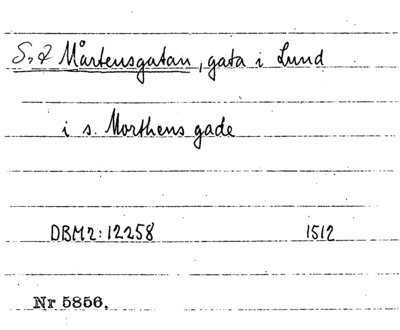 S:t Mårtensgatan, gata i Lund
i s. Morthens gade
DBM2:12258 1512
Nr 5856.